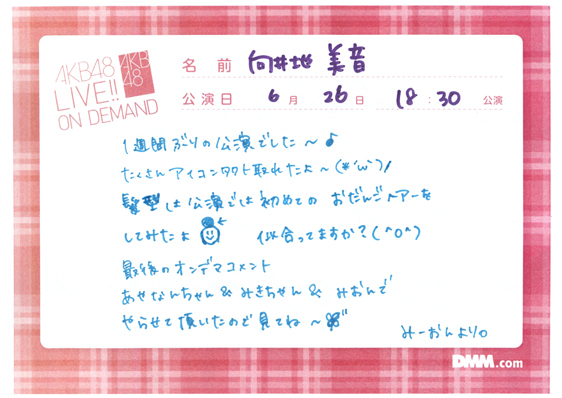 AKB48
LIVE!!
ON DEMAND
AKB
48
名 前 向井地 美音
公演日 6月 26日 18:30 公演
1週間ぶりの公演でした〜♪
たくさんアイコンタクト取れたよ〜(*´ω`)/
髪型は公演では初めての おだんごヘアーを
してみたよ ← 似合ってますか?(^o^)
最後のオンデマコメント
あせなんちゃん&みきちゃん& みおんで
やらせて頂いたので見てね〜
みーおんより。
DMM.com